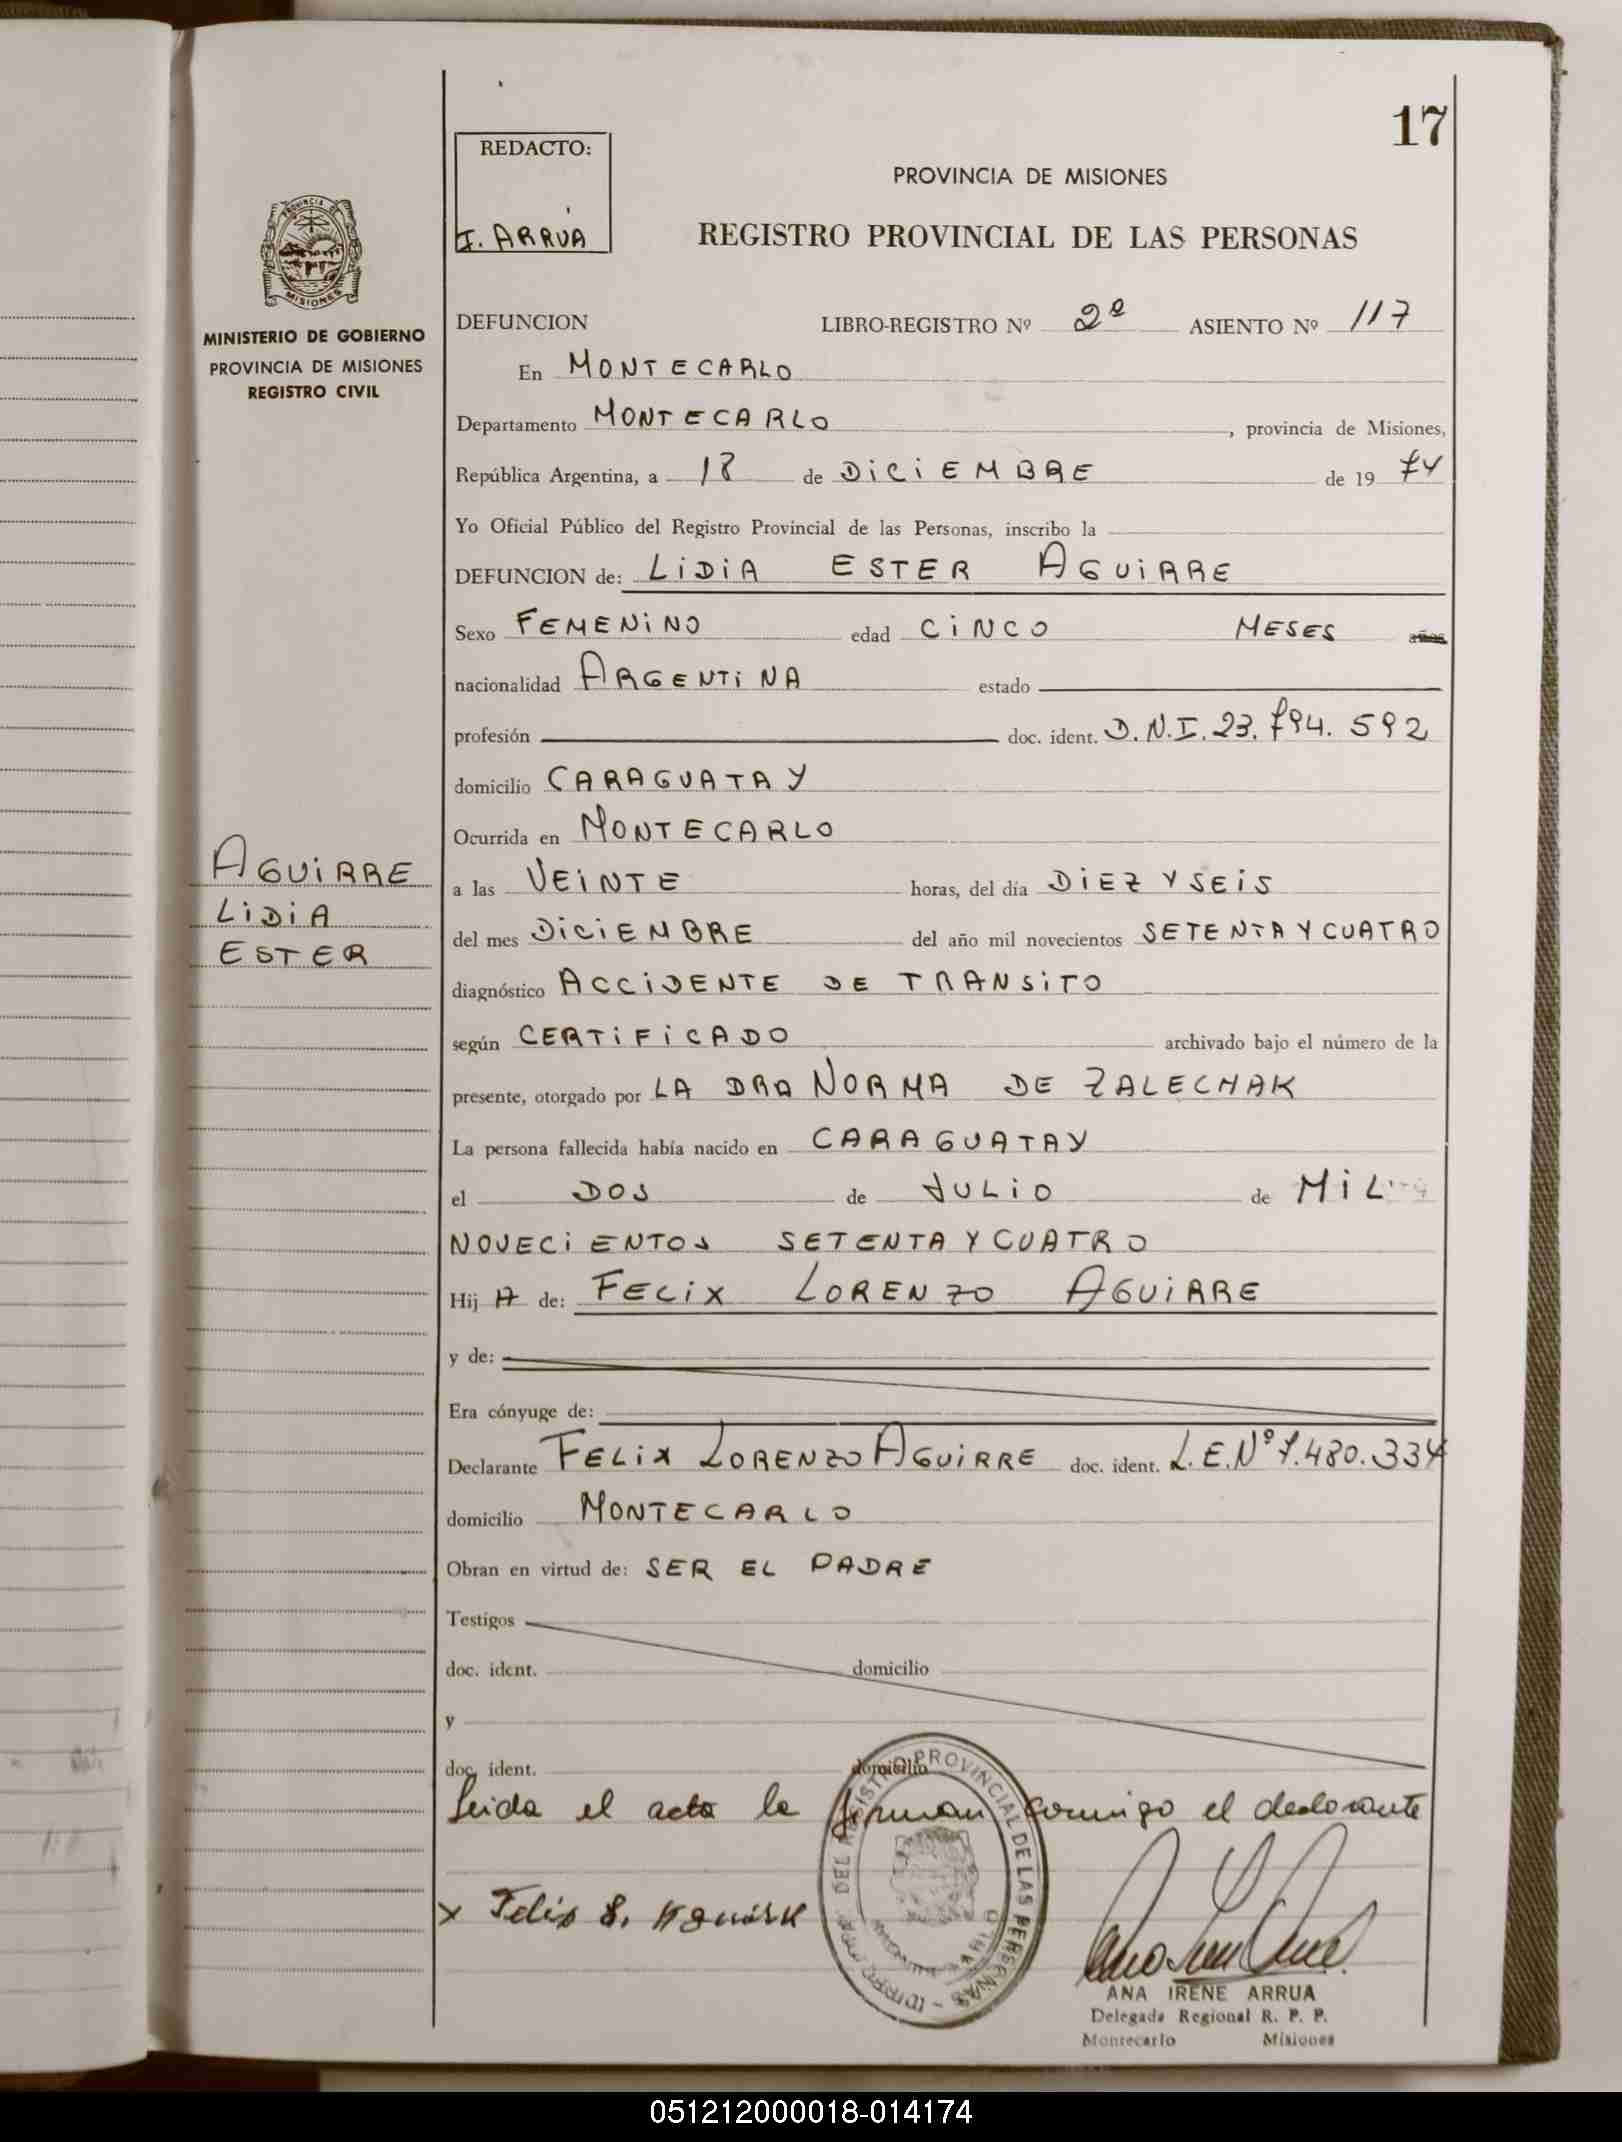 17
REDACTO:
I. ARRUA
PROVINCIA DE MISIONES
REGISTRO PROVINCIAL DE LAS PERSONAS
PROVINCIA DE
MISIONES
MINISTERIO DE GOBIERNO
PROVINCIA DE MISIONES
REGISTRO CIVIL
DEFUNCION LIBRO-REGISTRO Nº 2º ASIENTO Nº 117
En MONTECARLO
Departamento MONTECARLO, provincia de Misiones,
República Argentina, a 18 de DICIEMBRE de 19 74
Yo Oficial Público del Registro Provincial de las Personas, inscribo la
DEFUNCION de: LIDIA ESTER AGUIRRE
Sexo FEMENINO edad CINCO MESES años
nacionalidad ARGENTINA estado
profesión doc. ident. D.N.I. 23.794.592
domicilio CARAGUATAY
Ocurrida en MONTECARLO
AGUIRRE
LIDIA
ESTER
a las VEINTE horas, del día DIEZ Y SEIS
del mes DICIEMBRE del año mil novecientos SETENTA Y CUATRO
diagnóstico ACCIDENTE DE TRANSITO
según CERTIFICADO archivado bajo el número de la
presente, otorgado por LA DRA NORMA DE ZALECHAK
La persona fallecida había nacido en CARAGUATAY
el DOS de JULIO de MIL
NOVECIENTOS SETENTA Y CUATRO
Hij A de: FELIX LORENZO AGUIRRE
y de:
Era cónyuge de:
Declarante FELIX LORENZO AGUIRRE doc. ident. L.E.Nº 7.480.334
domicilio MONTECARLO
Obran en virtud de: SER EL PADRE
Testigos
doc. ident. domicilio
y
doc. ident. domicilio
Leida el acta la firman conmigo el declarante
x Felix L. Aguirre
DEL REGISTRO PROVINCIAL DE LAS PERSONAS
ANA IRENE ARRUA
Delegada Regional R. P. P.
Montecarlo Misiones
051212000018-014174